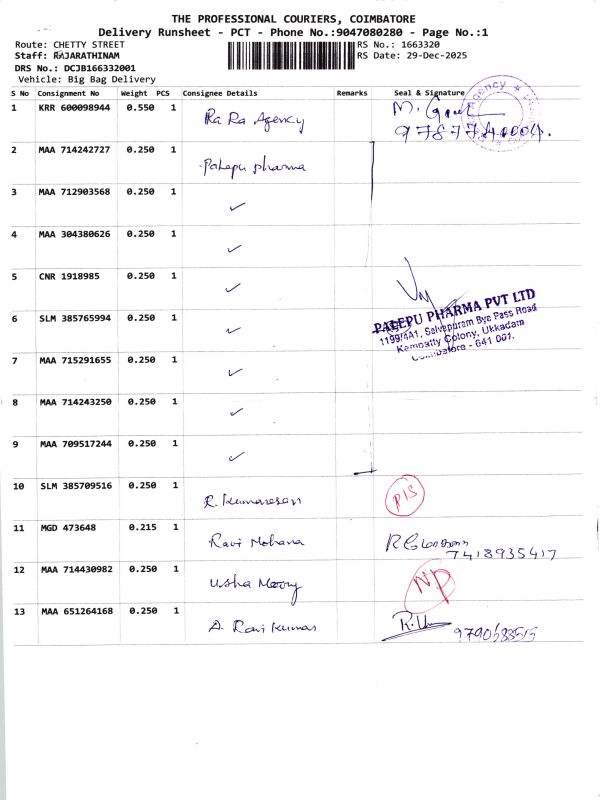 THE PROFESSIONAL COURIERS, COIMBATORE
Delivery Runsheet - PCT - Phone No.:9047080280 - Page No.:1
Route: CHETTY STREET
RS No.: 1663320
Staff: RAJARATHINAM
RS Date: 29-Dec-2025
DRS No.: DCJB166332001
Vehicle: Big Bag Delivery
S No Consignment No Weight PCS Consignee Details Remarks Seal & Signature
1 KRR 600098944 0.550 1 Ra Ra Agency
2 MAA 714242727 0.250 1 Palepu pharma
3 MAA 712903568 0.250 1 ✓
4 MAA 304380626 0.250 1 ✓
5 CNR 1918985 0.250 1 ✓
6 SLM 385765994 0.250 1 ✓
PALEPU PHARMA PVT LTD
1199/4A1, Selvapuram Bye Pass Road
Kempatty Colony, Ukkadam
Coimbatore - 641 001.
7 MAA 715291655 0.250 1 ✓
8 MAA 714243250 0.250 1 ✓
9 MAA 709517244 0.250 1 ✓
10 SLM 385709516 0.250 1 R. Kumaresan P/S
11 MGD 473648 0.215 1 Ravi Mohana
7418935417
12 MAA 714430982 0.250 1 Usha Moorty NP
13 MAA 651264168 0.250 1 A. Ravi Kumar